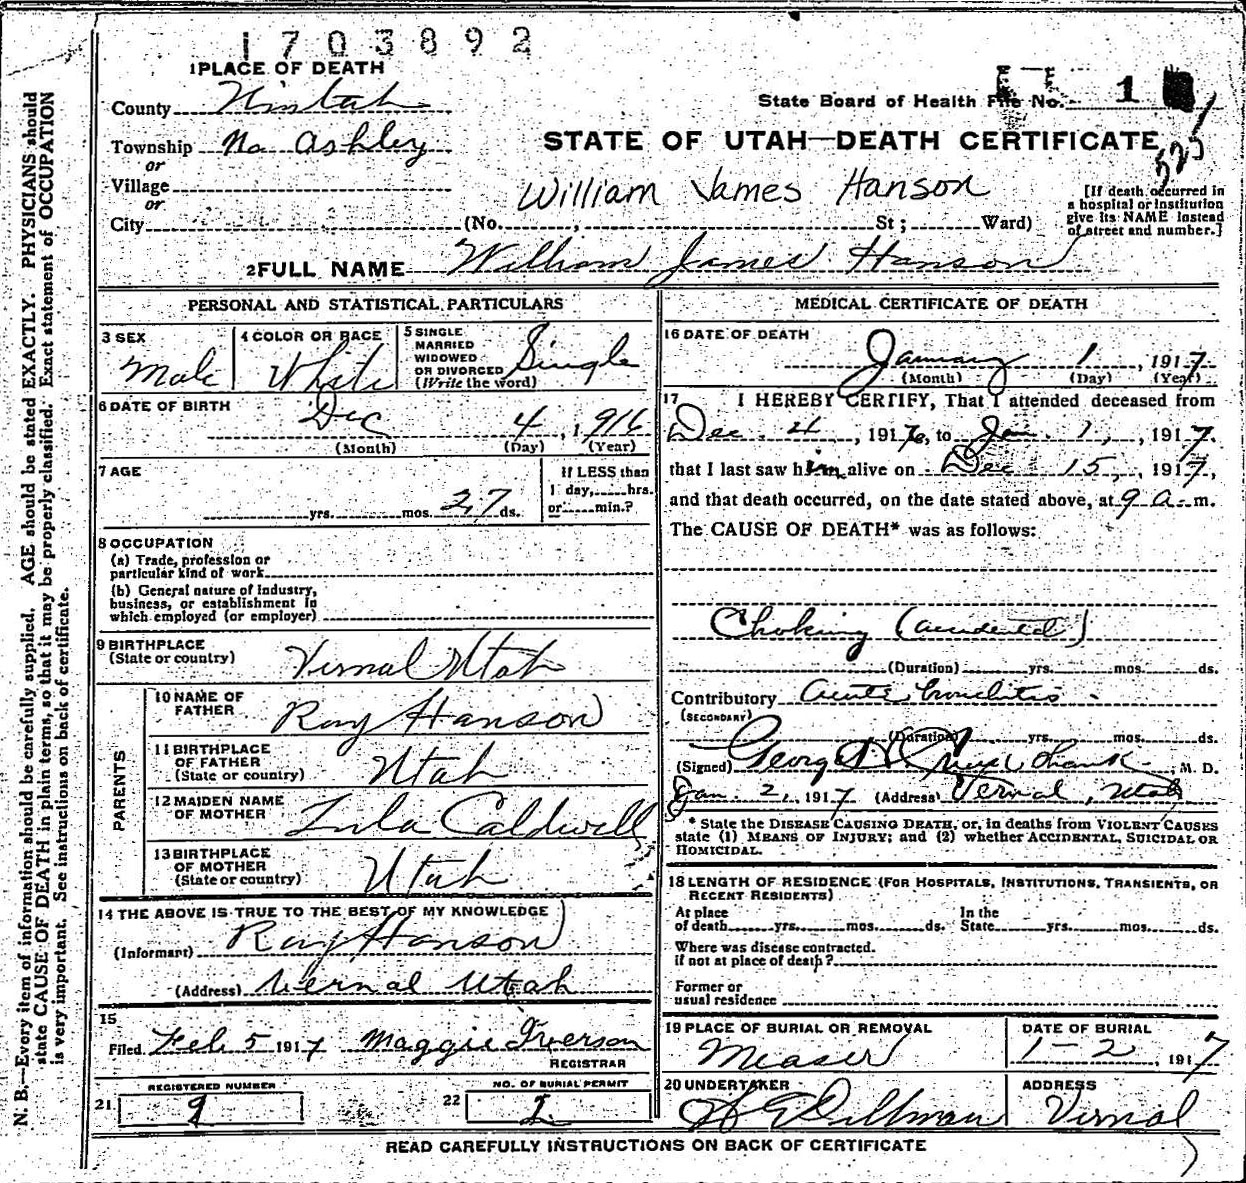 1703892
1 PLACE OF DEATH
County Uintah
State Board of Health File No. 1
Township No. Ashley
STATE OF UTAH—DEATH CERTIFICATE
or
Village
William James Hanson
or
City (No. , St; Ward)
[If death occurred in
a hospital or institution
give its NAME instead
of street and number.]
2 FULL NAME William James Hanson
PERSONAL AND STATISTICAL PARTICULARS
3 SEX
Male
4 COLOR OR RACE
White
5 SINGLE
MARRIED
WIDOWED
OR DIVORCED
(Write the word)
Single
6 DATE OF BIRTH
Dec 4, 1916
(Month) (Day) (Year)
7 AGE
yrs. mos. 27 ds.
If LESS than
1 day, hrs.
or min.?
8 OCCUPATION
(a) Trade, profession or
particular kind of work
(b) General nature of Industry,
business, or establishment in
which employed (or employer)
9 BIRTHPLACE
(State or country)
Vernal Utah
PARENTS
10 NAME OF
FATHER
Ray Hanson
11 BIRTHPLACE
OF FATHER
(State or country)
Utah
12 MAIDEN NAME
OF MOTHER
Lula Caldwell
13 BIRTHPLACE
OF MOTHER
(State or country)
Utah
14 THE ABOVE IS TRUE TO THE BEST OF MY KNOWLEDGE
(Informant) Ray Hanson
(Address) Vernal Utah
15
Filed Feb 5 1917 Maggie Iverson
REGISTRAR
REGISTERED NUMBER
21
NO. OF BURIAL PERMIT
22
MEDICAL CERTIFICATE OF DEATH
16 DATE OF DEATH
January 1, 1917
(Month) (Day) (Year)
17 I HEREBY CERTIFY, That I attended deceased from
Dec. 4, 1916, to Jan. 1, 1917.
that I last saw him alive on Dec 15, 1917,
and that death occurred, on the date stated above, at 9 a. m.
The CAUSE OF DEATH* was as follows:
Choking (accidental)
(Duration) yrs. mos. ds.
Contributory acute bronchitis
(SECONDARY)
(Duration) yrs. mos. ds.
(Signed) George M. D.
Jan. 2, 1917 (Address) Vernal, Utah
* State the DISEASE CAUSING DEATH, or, in deaths from VIOLENT CAUSES
state (1) MEANS OF INJURY; and (2) whether ACCIDENTAL, SUICIDAL OR
HOMICIDAL.
18 LENGTH OF RESIDENCE (FOR HOSPITALS, INSTITUTIONS, TRANSIENTS, OR
RECENT RESIDENTS)
At place
of death yrs. mos. ds.
In the
State yrs. mos. ds.
Where was disease contracted.
if not at place of death?
Former or
usual residence
19 PLACE OF BURIAL OR REMOVAL
Measer
DATE OF BURIAL
1-2, 1917
20 UNDERTAKER
Dillman
ADDRESS
Vernal
READ CAREFULLY INSTRUCTIONS ON BACK OF CERTIFICATE
N. B.—Every item of information should be carefully supplied. AGE should be stated EXACTLY. PHYSICIANS should
state CAUSE OF DEATH in plain terms, so that it may be properly classified. Exact statement of OCCUPATION
is very important. See instructions on back of certificate.